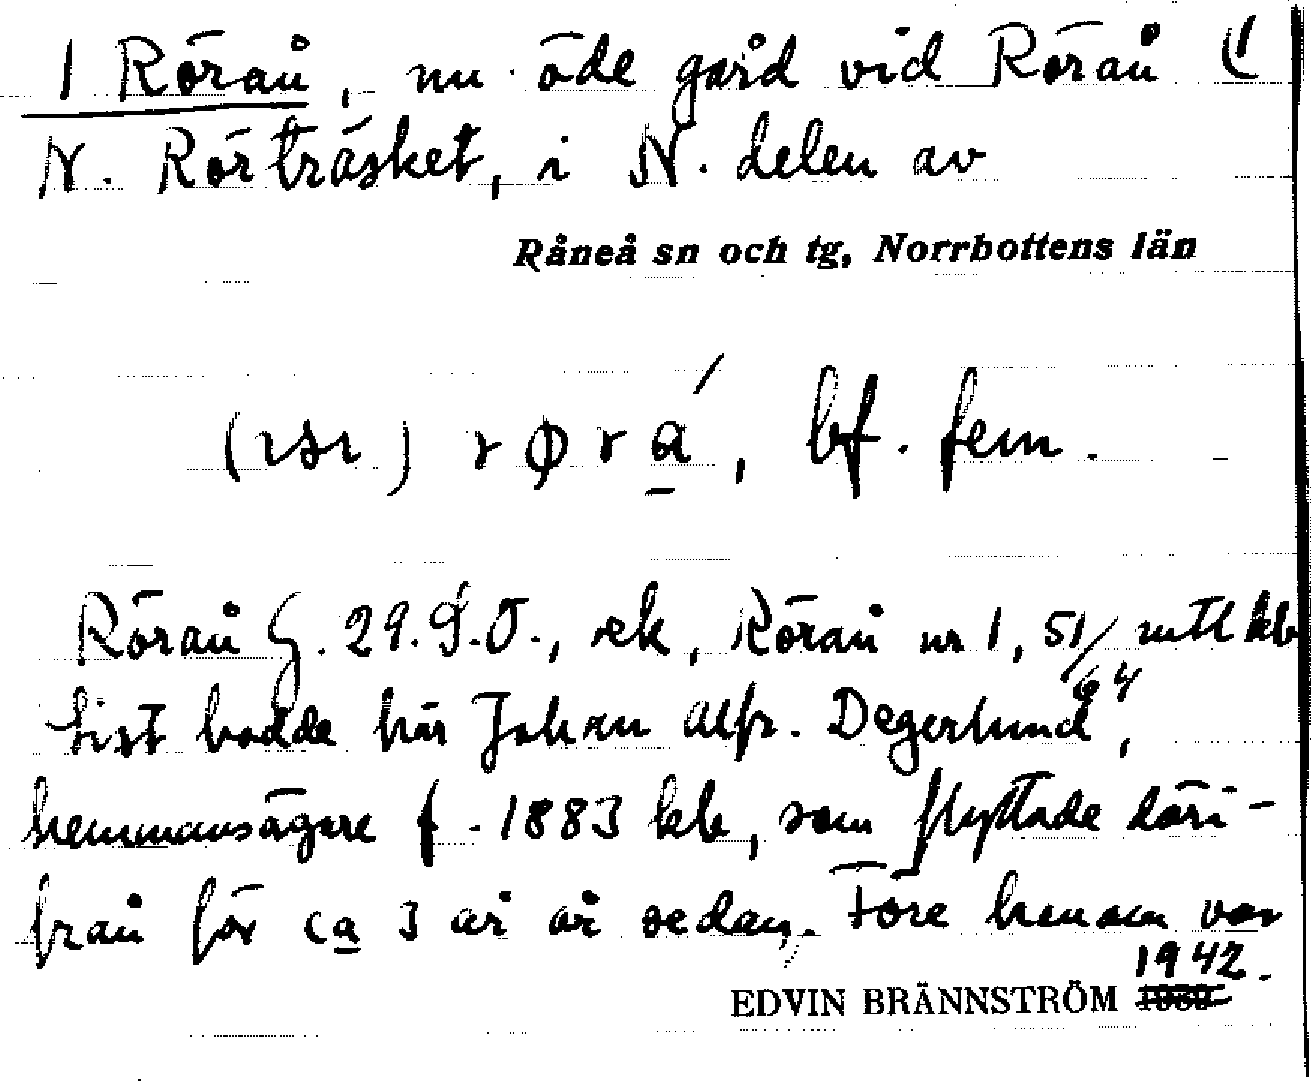 1 Rörån, nu öde gård vid Rörån (
N. Rörträsket, i N. delen av
Råneå sn och tg, Norrbottens län
(rsr) rørá, bf. fem.
Rörån G. 29.S.O., ek, Rörån nr 1, 51/64 mtl kb
Sist bodde här Johan Alfr. Degerlund,
hemmansägare f. 1883 kb, som flyttade däri-
från för ca 3 år år sedan. Före honom var
1942.
EDVIN BRÄNNSTRÖM 1939